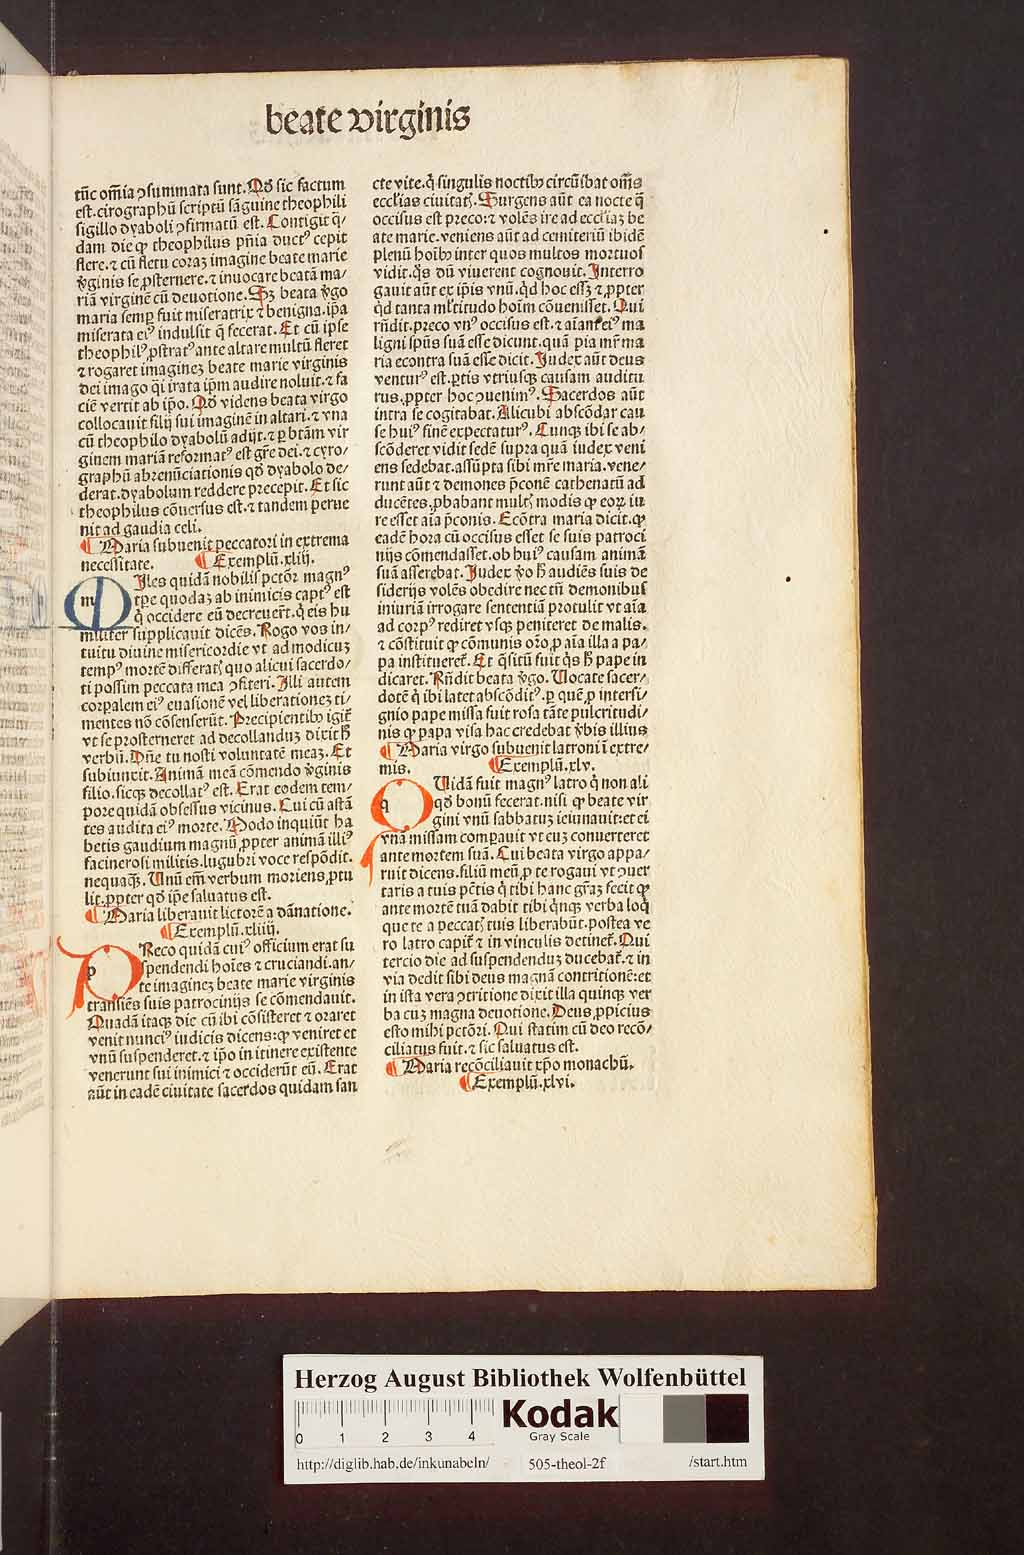 beate virginis
tūc om̄ia ꝯsummata sunt. Qd̄ sic factum
est. cirographū scriptū sāguine theophili
sigillo dyaboli ꝯfirmatū est. Contigit q̄/
dam die ꝙ theophilus pn̄ia ductꝰ cepit
flere. ⁊ cū fletu coraꝫ imagine beate marie
v̄ginis se ꝓsternere. ⁊ inuocare beatā ma/
riā virginē cū deuotione. Sꝫ beata v̄go
maria semꝑ fuit miseratrix ⁊ benigna. ip̄a
miserata eiꝰ indulsit q̄ fecerat. Et cū ipse
theophilꝰ ꝓstratꝰ ante altare multū fleret
⁊ rogaret imagineꝫ beate marie virginis
dei imago q̄i irata ip̄m audire noluit. ⁊ fa
ciē vertit ab ip̄o. Qd̄ videns beata virgo
collocauit filij sui imaginē in altari. ⁊ vna
cū theophilo dyabolū adijt. ⁊ ꝑ btām vir
ginem mariā reformatꝰ est gr̄e dei. ⁊ cyro/
graphū abrenūciationis qd̄ dyabolo de/
derat. dyabolum reddere precepit. Et sic
theophilus cōuersus est. ⁊ tandem perue
nit ad gaudia celi.
Maria subuenit peccatori in extrema
necessitate. Exemplū. xliij.
m Iles quidā nobilis pctōꝛ magnꝰ
tꝑe quodaꝫ ab inimicis captꝰ est
q̄ occidere eū decreuer̄t. q̄ eis hu
militer supplicauit dicēs. Rogo vos in/
tuitu diuine misericordie vt ad modicuꝫ
tempꝰ mortē differatꝭ quo alicui sacerdo/
ti possim peccata mea ꝯfiteri. Illi autem
corꝑalem eiꝰ euasionē vel liberationeꝫ ti/
mentes nō cōsenserūt. Precipientibꝫ igit̄
vt se prosterneret ad decollanduꝫ dixit h̄
verbū. Dn̄e tu nosti voluntatē meaꝫ. Et
subiunxit. Animā meā cōmendo v̄ginis
filio. sicqꝫ decollatꝰ est. Erat eodem tem/
pore quidā obsessus vicinus. Cui cū astā
tes audita eiꝰ morte. Modo inquiūt ha
betis gaudium magnū ꝓpter animā illiꝰ
facinerosi militis. lugubri voce respōdit.
nequaqꝫ. Unū em̄ verbum moriens ꝓtu
lit. ꝓpter qd̄ ip̄e saluatus est.
Maria liberauit lictorē a dānatione.
Exemplū. xliiij.
p Reco quidā cuiꝰ officium erat su
spendendi hoīes ⁊ cruciandi. an/
te imagineꝫ beate marie virginis
transiēs suis patrocinijs se cōmendauit.
Quadā itaqꝫ die cū ibi cōsisteret ⁊ oraret
venit nunciꝰ iudicis dicens: ꝙ veniret et
vnū suspenderet. ⁊ ip̄o in itinere existente
venerunt sui inimici ⁊ occiderūt eū. Erat
aūt in eadē ciuitate sacerdos quidam san
cte vite. q̄ singulis noctibꝫ circūibat om̄s
eccl̄ias ciuitatꝭ. Surgens aūt ea nocte q̄
occisus est preco: ⁊ volēs ire ad eccl̄iaꝫ be
ate marie. veniens aūt ad cemiteriū ibidē
plenū hoībꝫ inter quos multos mortuos
vidit. q̄s dū viuerent cognouit. Interro
gauit aūt ex ip̄is vnū. qd̄ hoc essꝫ ⁊ ꝓpter
qd̄ tanta ml̄titudo hoīm cōuenisset. Qui
rn̄dit. preco vnꝰ occisus est. ⁊ aīam eiꝰ ma
ligni sp̄us suā esse dicunt. quā pia mr̄ ma
ria econtra suā esse dicit. Judex aūt deus
venturꝰ est. ꝑtis vtriusqꝫ causam auditu
rus. ꝓpter hoc ꝯuenimꝰ. Sacerdos aūt
intra se cogitabat. Alicubi abscōdar cau
se huiꝰ finē expectaturꝰ. Cunqꝫ ibi se ab/
scōderet vidit sedē supra quā iudex veni
ens sedebat. assūpta sibi mr̄e maria. vene/
runt aūt ⁊ demones p̄conē cathenatū ad
ducētes. ꝓbabant multꝭ modis ꝙ eoꝝ iu
re esset aīa p̄conis. Ecōtra maria dicit. ꝙ
eadē hora cū occisus esset se suis patroci
nijs cōmendasset. ob huiꝰ causam animā
suā asserebat. Judex v̄o h̄ audiēs suis de
siderijs volēs obedire nec tū demonibus
iniuriā irrogare sententiā protulit vt aīa
ad corpꝰ rediret vsqꝫ peniteret de malis.
⁊ cōstituit ꝙ cōmunis or̄o ꝓ aīa illa a pa/
pa institueret̄. Et q̄sitū fuit q̄s h̄ pape in
dicaret. Rn̄dit beata v̄go. Uocate sacer/
dotē q̄ ibi latet abscōditꝰ. ꝑ quē ꝓ intersi/
gnio pape missa fuit rosa tāte pulcritudi/
nis ꝙ papa visa hac credebat v̄bis illius
Maria virgo subuenit latroni ī extre/
mis. Exemplū. xlv.
q Uidā fuit magnꝰ latro q̄ non ali
qd̄ bonū fecerat. nisi ꝙ beate vir
gini vnū sabbatuꝫ ieiunauit: et ei
vnā missam comꝑauit vt euꝫ conuerteret
ante mortem suā. Cui beata virgo appa/
ruit dicens. filiū meū ꝓ te rogaui vt ꝯuer
taris a tuis pctīs q̄ tibi hanc gr̄aꝫ fecit ꝙ
ante mortē tuā dabit tibi q̄nqꝫ verba loq̄
que te a peccatꝭ tuis liberabūt. postea ve
ro latro capit̄ ⁊ in vinculis detinet̄. Qui
tercio die ad suspenduꝫ ducebat̄. ⁊ in
via dedit sibi deus magnā contritionē: et
in ista vera ꝯtritione dixit illa quinqꝫ ver
ba cuꝫ magna deuotione. Deus ꝓpicius
esto mihi pctōri. Qui statim cū deo recō/
ciliatus fuit. ⁊ sic saluatus est.
Maria recōciliauit xp̄o monachū.
Exemplū. xlvi.
Herzog August Bibliothek Wolfenbüttel
0 1 2 3 4
Kodak
Gray Scale
http://diglib.hab.de/inkunabeln/ 505-theol-2f /start.htm